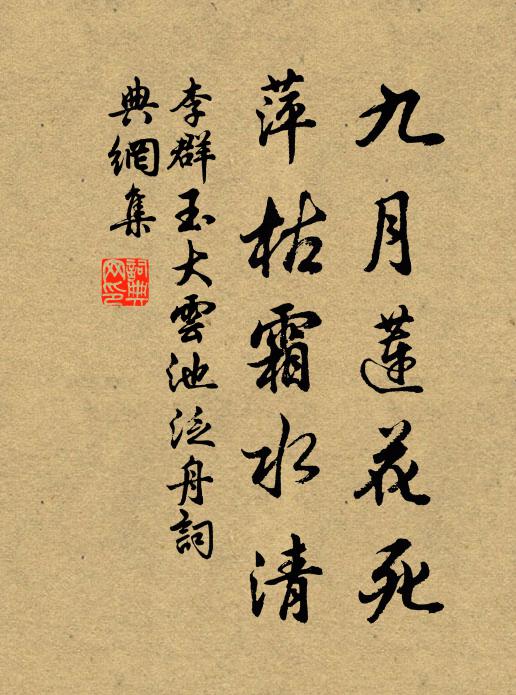 九月蓮花死
萍枯霜水清
李群玉大雲池泛舟詞
典網集
詞典
网印